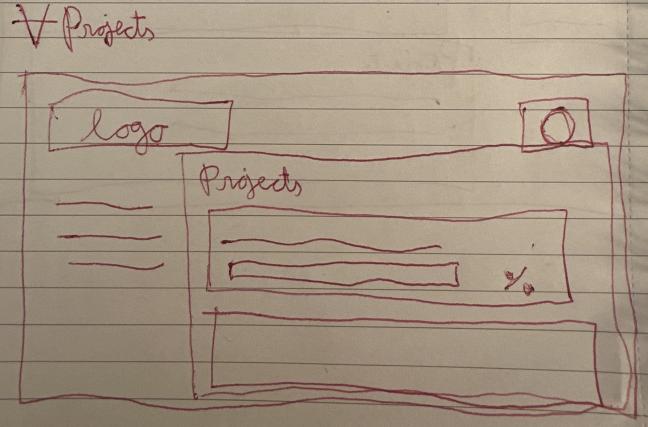 ∀ Projects
logo
Projects
%